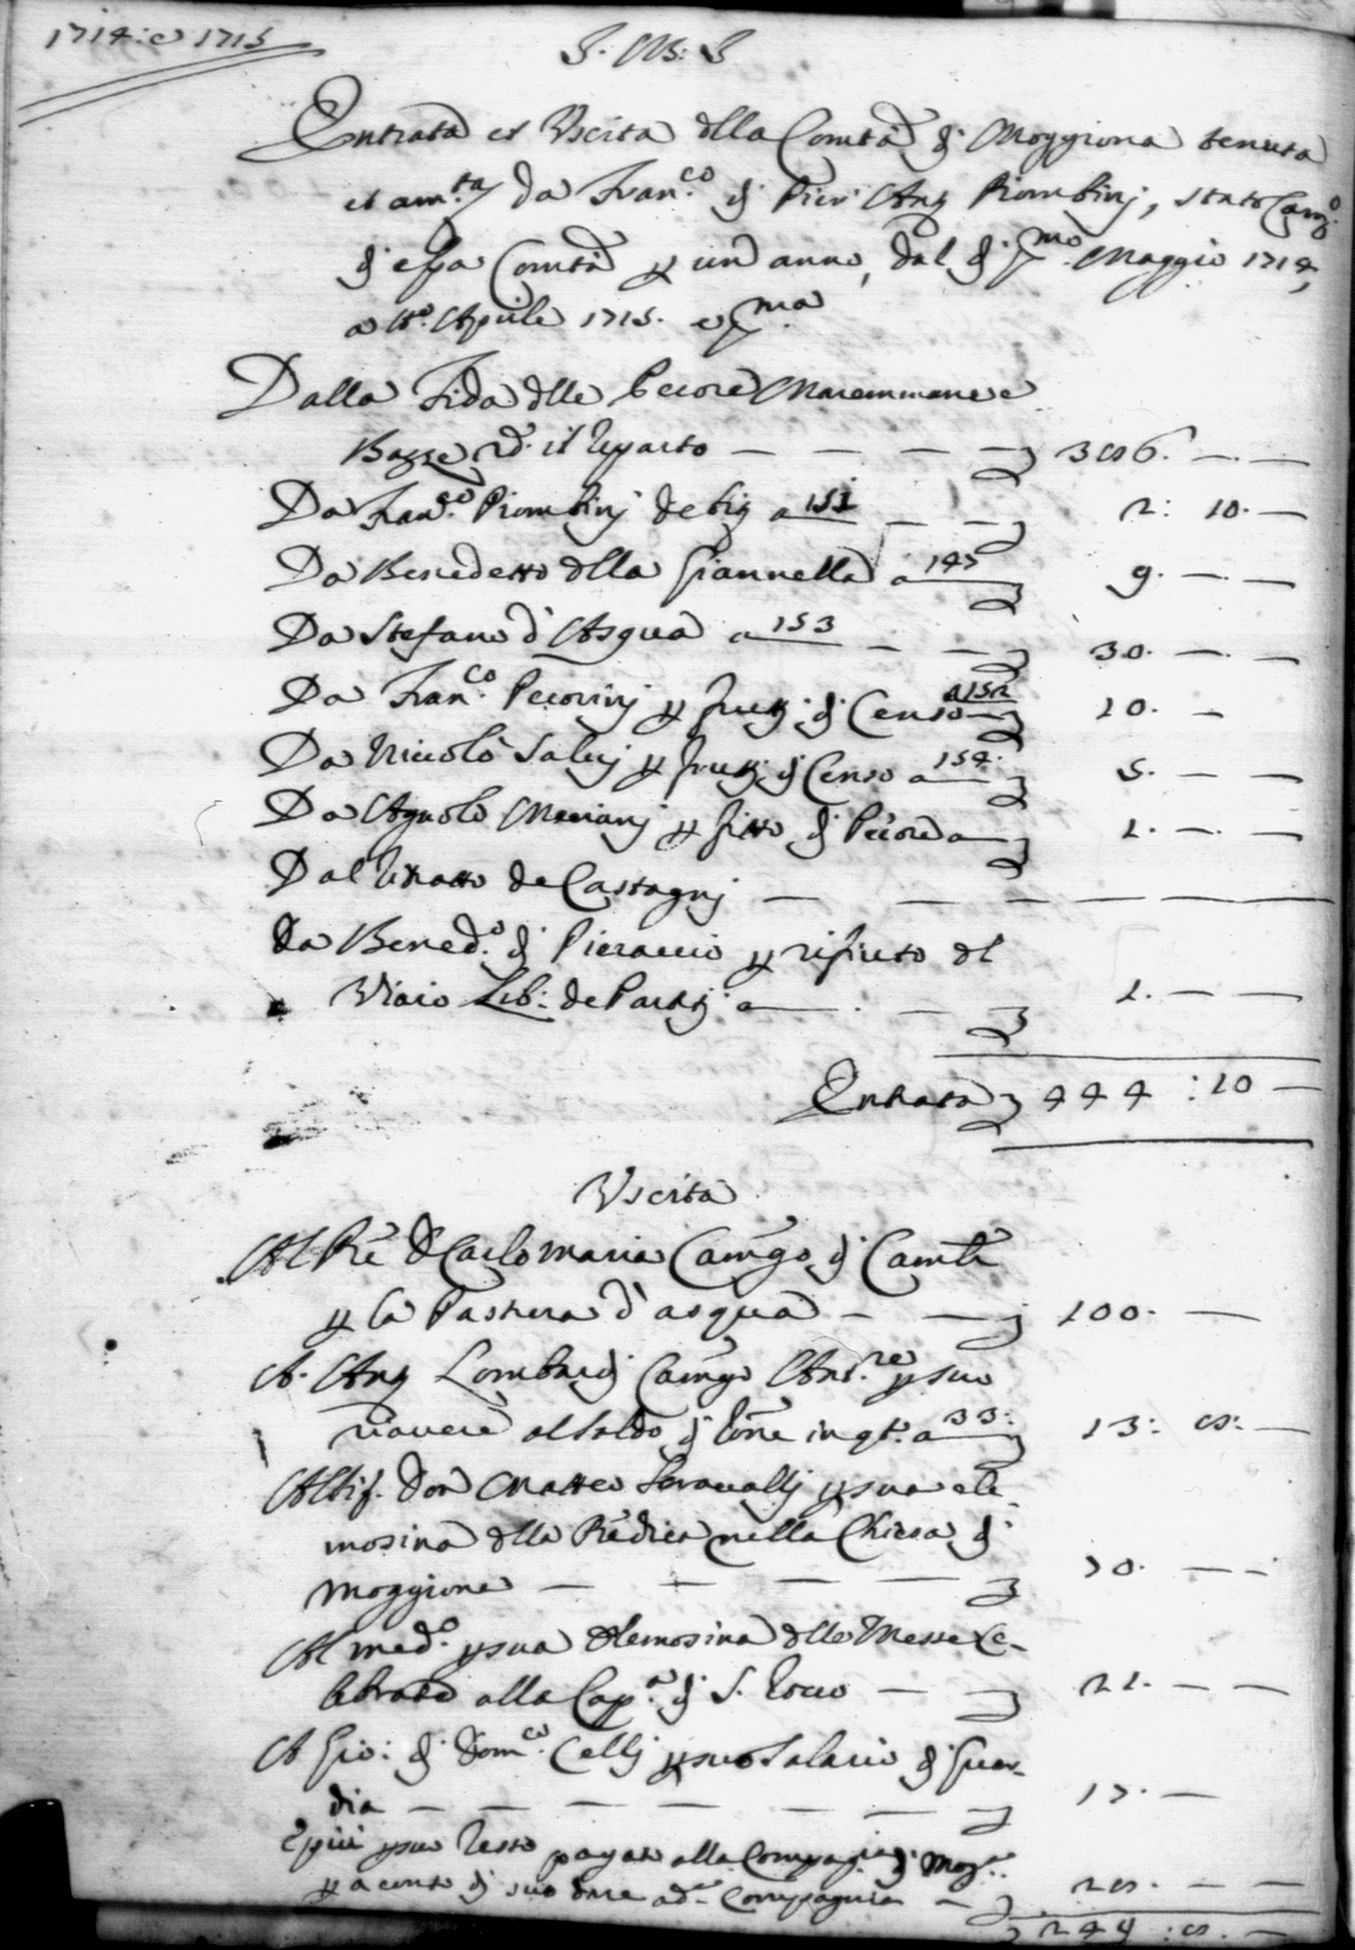 1714: e 1715
S. M: S
Entrata et Uscita dlla Comtà di Moggiona tenuta
et am.ta da Fran.co di Pier Ang Piombinj, stato Camg.o
di essa Comtà p un anno, dal di pmo Maggio 1714,
a tto Aprile 1715. e pma
Dalla Fida dlle Pecore Maremmane e
Bagge sd. il reparto — — — — 386. — —
Da Fran.co Piombinj debig a 151 — — 2: 10. —
Da Benedetto dlla Giannella a 147 9. — —
Da Stefano d'Asqua a 153 — — 30. — —
Da Fran.co Pecorinj p frutti di Censo a 152 10. —
Da Niccolò Salvj p frutti di Censo a 154. 5. — —
Da Agnolo Marianj p fitto di Pecore a — 1. — —
Dal Ritratto de Castagnj — — — — — —
Da Bened.o di Pieraccio p rifiuto dl
Viaio Lib: de Partiti a — — — 1. — —
Entrata 444 : 10 —
Uscita
Al Rē D Carlo Maria Camgo di Camli
p la Pastura d'asqua — — 100. —
A. Ang Lombardj Camgo Ant.re p suo
riavere al saldo di Rone in qto a 33: 13: 8: —
Al Sig. Don Matteo Seravallj p sua ele
mosina dlla Predica nella Chiesa di
Moggiona — — — — 70. — —
Al med.o p sua Elemosina dlle Messe Ce-
lebrate alla Capp.a di S. Rocco — — 21. — —
A Gio: di Dom.co Cellj p suo Salario di Guar-
dia — — — — — — — 17. —
E più p suo resto pagato alla Compag.ia di Mog.na
p a conto di suo dare a d.a Compagnia — 28. — —
249 : 8. —